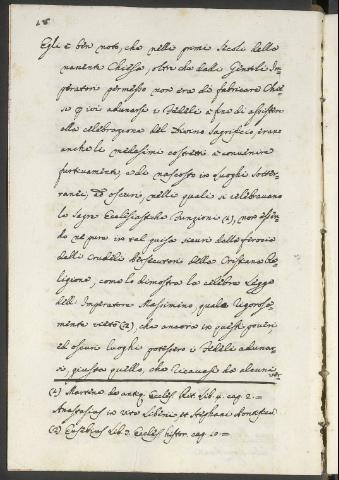 Egli è ben noto, che nelli primi Secoli della
nanente Chiesa, oltre che dalli Gentili Im-
peratori permesso non era di fabricare Chie-
se, e ivi adunarsi i Fedeli a fine di assistere
alla celebrazione del Divino Sagrificio, erano
anche li medesimi costretti a convenire
furtivamente, e di nascosto in Luoghi Sotter-
ranei, ed oscuri, nelli quali si celebravano
le Sagre Ecclesiastiche Funzioni (1), non essen-
do nè pure in tal guisa sicuri dalla ferocia
delli Crudeli Persecutori della Cristiana Re-
ligione, come lo dimostra la celebre Legge
dell' Imperatore Massimino, quale rigorosa-
mente vietò (2), che ancora in questi poveri,
ed oscuri luoghi potessero i Fedeli adunar-
si, giusta quello, che ricavasi da alcuni
(1) Martene de antiq. Eccles. Rit. Lib. 4. cap. 2. =
Anastasius in vita Liberii et Stephani Pontificum
(2) Eusebius Lib. 9. Eccles. histor. cap. 10 =